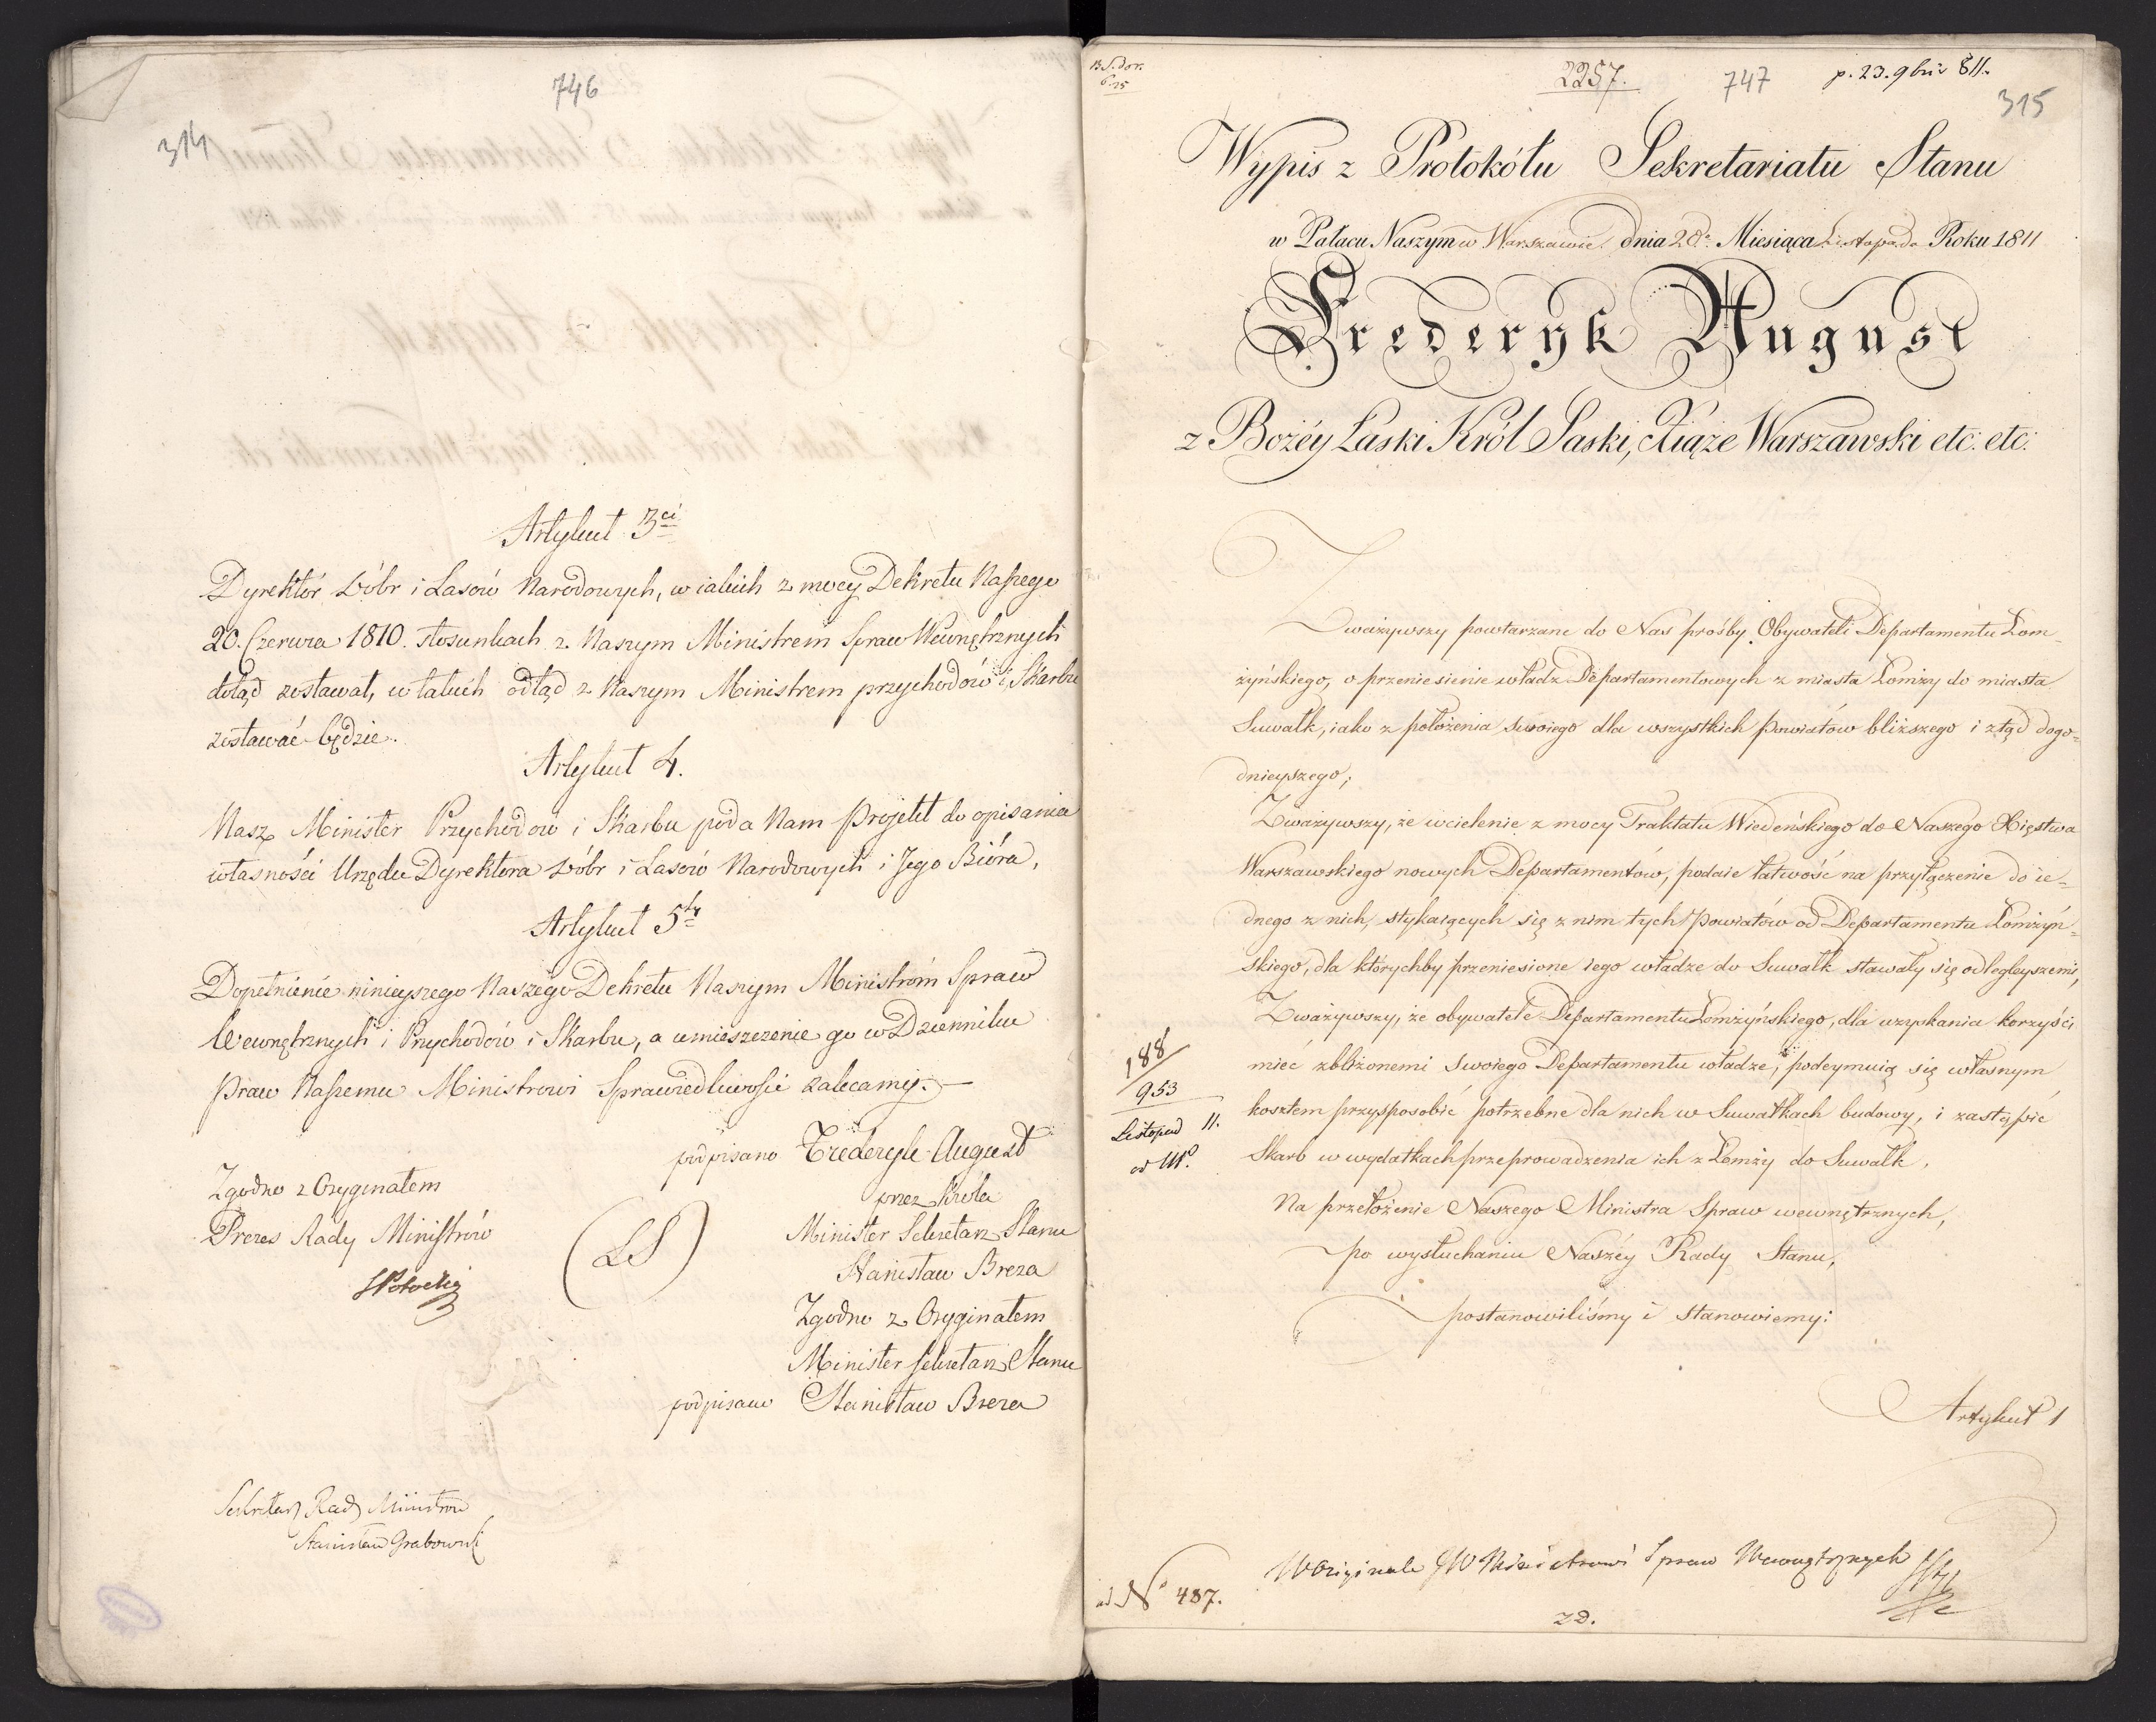 746
314
Artykuł 3ci
Dyrektór Dóbr i Lasów Narodowych, w iakich z mocy Dekretu Naszego
20. Czerwca 1810. stosunkach z Naszym Ministrem Spraw Wewnętrznych
dotąd zostawał, w takich odtąd z Naszym Ministrem przychodów i Skarbu
zostawać będzie.
Artykuł 4.
Nasz Minister Przychodów i Skarbu poda Nam Projekt do opisania
własności Urzędu Dyrektora Dóbr i Lasów Narodowych i Jego Bióra,
Artykuł 5ty
Dopełnienie ninieyszego Naszego Dekretu Naszym Ministróm Spraw
Wewnętrznych i Przychodów i Skarbu, a umieszczenie go w Dzienniku
Praw Naszemu Ministrowi Sprawiedliwości zalecamy.
podpisano Frederyk August
przez Króla
Minister Sekretarz Stanu
Stanisław Breza
Zgodno z Oryginałem
Minister Sekretarz Stanu
podpisano Stanisław Breza
Zgodno z Oryginałem
Prezes Rady Ministrów
SPotocki
(LS)
Sekretarz Rady Ministrów
Stanisław Grabowski
2257.
747
p. 23. 9bris 811.
315
Wypis z Protokółu Sekretariatu Stanu
w Pałacu Naszym w Warszawie dnia 20o Miesiąca Listopada Roku 1811
Frederyk August
z Bożéy Łaski Król Saski, Xiąże Warszawski etc: etc:
Zważywszy powtarzane do Nas prośby Obywateli Departamentu Łom-
żyńskiego, o przeniesienie władz Departamentowych z miasta Łomży do miasta
Suwałk, iako z położenia swoiego dla wszystkich Powiatów bliższego i ztąd dogo-
dnieyszego;
Zważywszy, że wcielenie z mocy Traktatu Wiedeńskiego do Naszego Xięstwa
Warszawskiego nowych Departamentów, podaie łatwość na przyłączenie do ie-
dnego z nich, stykaiących się z nim tych Powiatów od Departamentu Łomżyń-
skiego, dla którychby przeniesione iego władze do Suwałk stawały się odlegleyszemi,
Zważywszy, że obywatele Departamentu Łomżyńskiego, dla uzyskania korzyści
mieć zbliżonemi swoiego Departamentu władze, podeymuią się własnym
kosztem przysposobić potrzebne dla nich w Suwałkach budowy, i zastąpić
Skarb w wydatkach przeprowadzenia ich z Łomży do Suwałk,
Na przełożenie Naszego Ministra Spraw wewnętrznych,
po wysłuchaniu Naszéy Rady Stanu,
postanowiliśmy i stanowiemy:
188
953
Listopad 11.
Artykuł 1
W Originale JW Ministrowi Spraw Wewnętrznych
ad No 487.